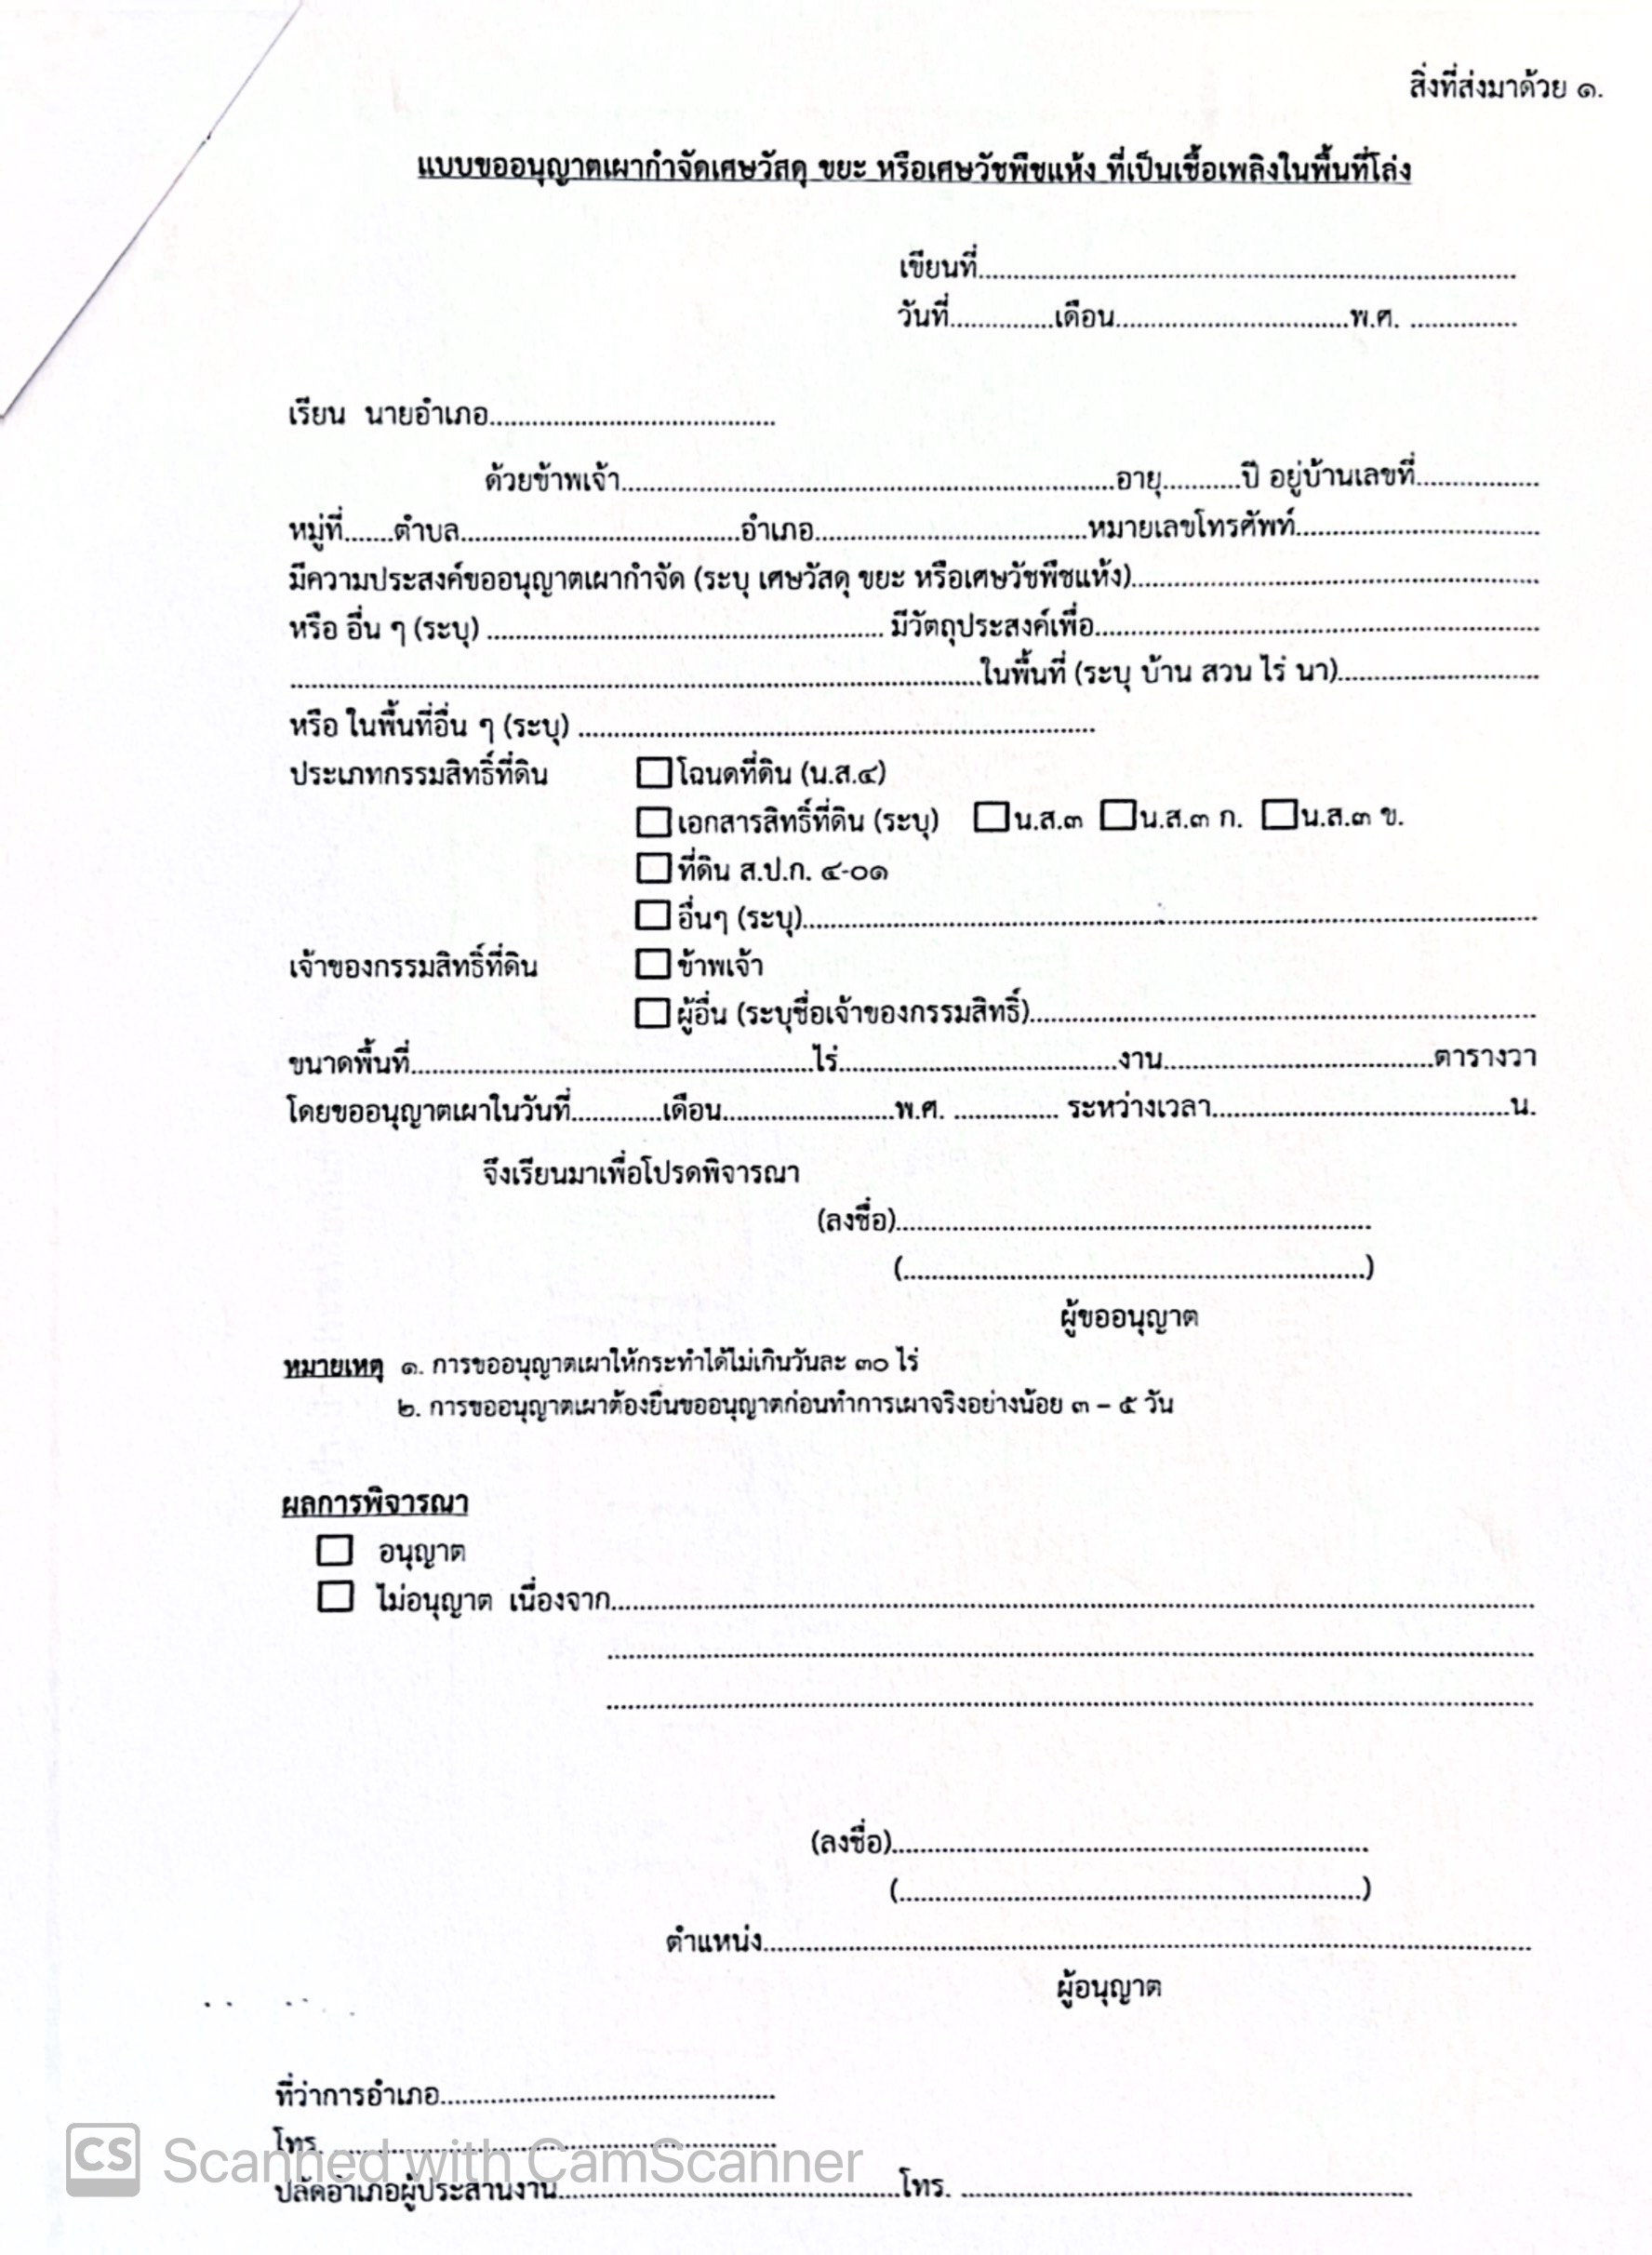 สิ่งที่ส่งมาด้วย ๑.
แบบขออนุญาตเผากำจัดเศษวัสดุ ขยะ หรือเศษวัชพืชแห้ง ที่เป็นเชื้อเพลิงในพื้นที่โล่ง
เขียนที่..........................................................................
วันที่...............เดือน.................................พ.ศ. ...............
เรียน นายอำเภอ.........................................
ด้วยข้าพเจ้า......................................................................อายุ...........ปี อยู่บ้านเลขที่.................
หมู่ที่.......ตำบล........................................อำเภอ.......................................หมายเลขโทรศัพท์...................................
มีความประสงค์ขออนุญาตเผากำจัด (ระบุ เศษวัสดุ ขยะ หรือเศษวัชพืชแห้ง)..........................................................
หรือ อื่น ๆ (ระบุ) ......................................................... มีวัตถุประสงค์เพื่อ...............................................................
...................................................................................................ในพื้นที่ (ระบุ บ้าน สวน ไร่ นา).............................
หรือ ในพื้นที่อื่น ๆ (ระบุ) ..........................................................................
ประเภทกรรมสิทธิ์ที่ดิน ☐ โฉนดที่ดิน (น.ส.๔)
☐ เอกสารสิทธิ์ที่ดิน (ระบุ) ☐ น.ส.๓ ☐ น.ส.๓ ก. ☐ น.ส.๓ ข.
☐ ที่ดิน ส.ป.ก. ๔-๐๑
☐ อื่นๆ (ระบุ)..........................................................................................
เจ้าของกรรมสิทธิ์ที่ดิน ☐ ข้าพเจ้า
☐ ผู้อื่น (ระบุชื่อเจ้าของกรรมสิทธิ์).......................................................................
ขนาดพื้นที่.........................................................ไร่........................................งาน.......................................ตารางวา
โดยขออนุญาตเผาในวันที่.............เดือน.........................พ.ศ. ............... ระหว่างเวลา...........................................น.
จึงเรียนมาเพื่อโปรดพิจารณา
(ลงชื่อ)....................................................................
(..................................................................)
ผู้ขออนุญาต
หมายเหตุ ๑. การขออนุญาตเผาให้กระทำได้ไม่เกินวันละ ๓๐ ไร่
๒. การขออนุญาตเผาต้องยื่นขออนุญาตก่อนทำการเผาจริงอย่างน้อย ๓ – ๕ วัน
ผลการพิจารณา
☐ อนุญาต
☐ ไม่อนุญาต เนื่องจาก....................................................................................................................
....................................................................................................................
....................................................................................................................
(ลงชื่อ)....................................................................
(..................................................................)
ตำแหน่ง..............................................................................................................
ผู้อนุญาต
ที่ว่าการอำเภอ................................................
โทร. ................................................................
ปลัดอำเภอผู้ประสานงาน.................................................โทร. ................................................................
CS Scanned with CamScanner